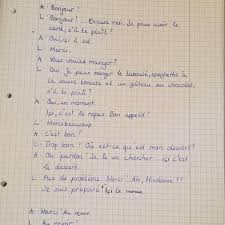 A: Bonjour!
L: Bonjour! ... Excuse moi. Je peux avoir la
card, s'il te plaît?
A: Oui, ici il est.
L: Merci.
A: Vous voulez manger?
L: Oui je peux manger le baboulé, spaghetti à
la sauce tomate et un gateau au chocolat,
s'il te plaît!
A: Oui, un moment.
Ici, c'est le repas. Bon appetit!
L: Merci beaucoup
A: C'est bon?
L: Trop bon! Où est-ce qu est mon dessert?
A: Oh pardon. Je le va chercher... ici c'est
le dessert.
L: Pas de problème. Merci. Ah, Madame!!
Je suis préparé. Ici le
A: Merci. Au revoir
L: Au revoir